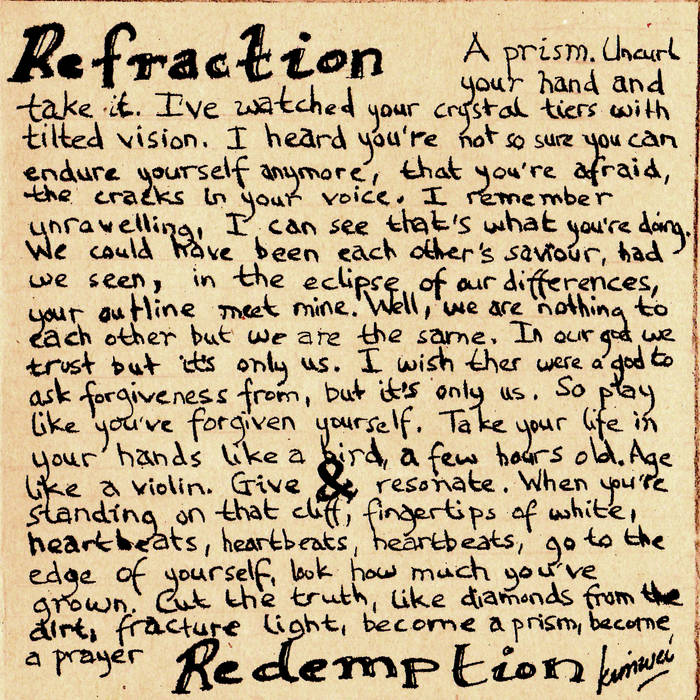 Refraction
A prism. Uncurl
your hand and
take it. I've watched your crystal tiers with
tilted vision. I heard you're not so sure you can
endure yourself anymore, that you're afraid,
the cracks in your voice. I remember
unravelling, I can see that's what you're doing.
We could have been each other's saviour, had
we seen, in the eclipse of our differences,
your outline meet mine. Well, we are nothing to
each other but we are the same. In our god we
trust but it's only us. I wish ther were a god to
ask forgiveness from, but it's only us. So play
like you've forgiven yourself. Take your life in
your hands like a bird, a few hours old. Age
like a violin. Give & resonate. When you're
standing on that cliff, fingertips of white,
heartbeats, heartbeats, heartbeats, go to the
edge of yourself, look how much you've
grown. Cut the truth, like diamonds from the
dirt, fracture light, become a prism, become
a prayer
Redemption kimwei